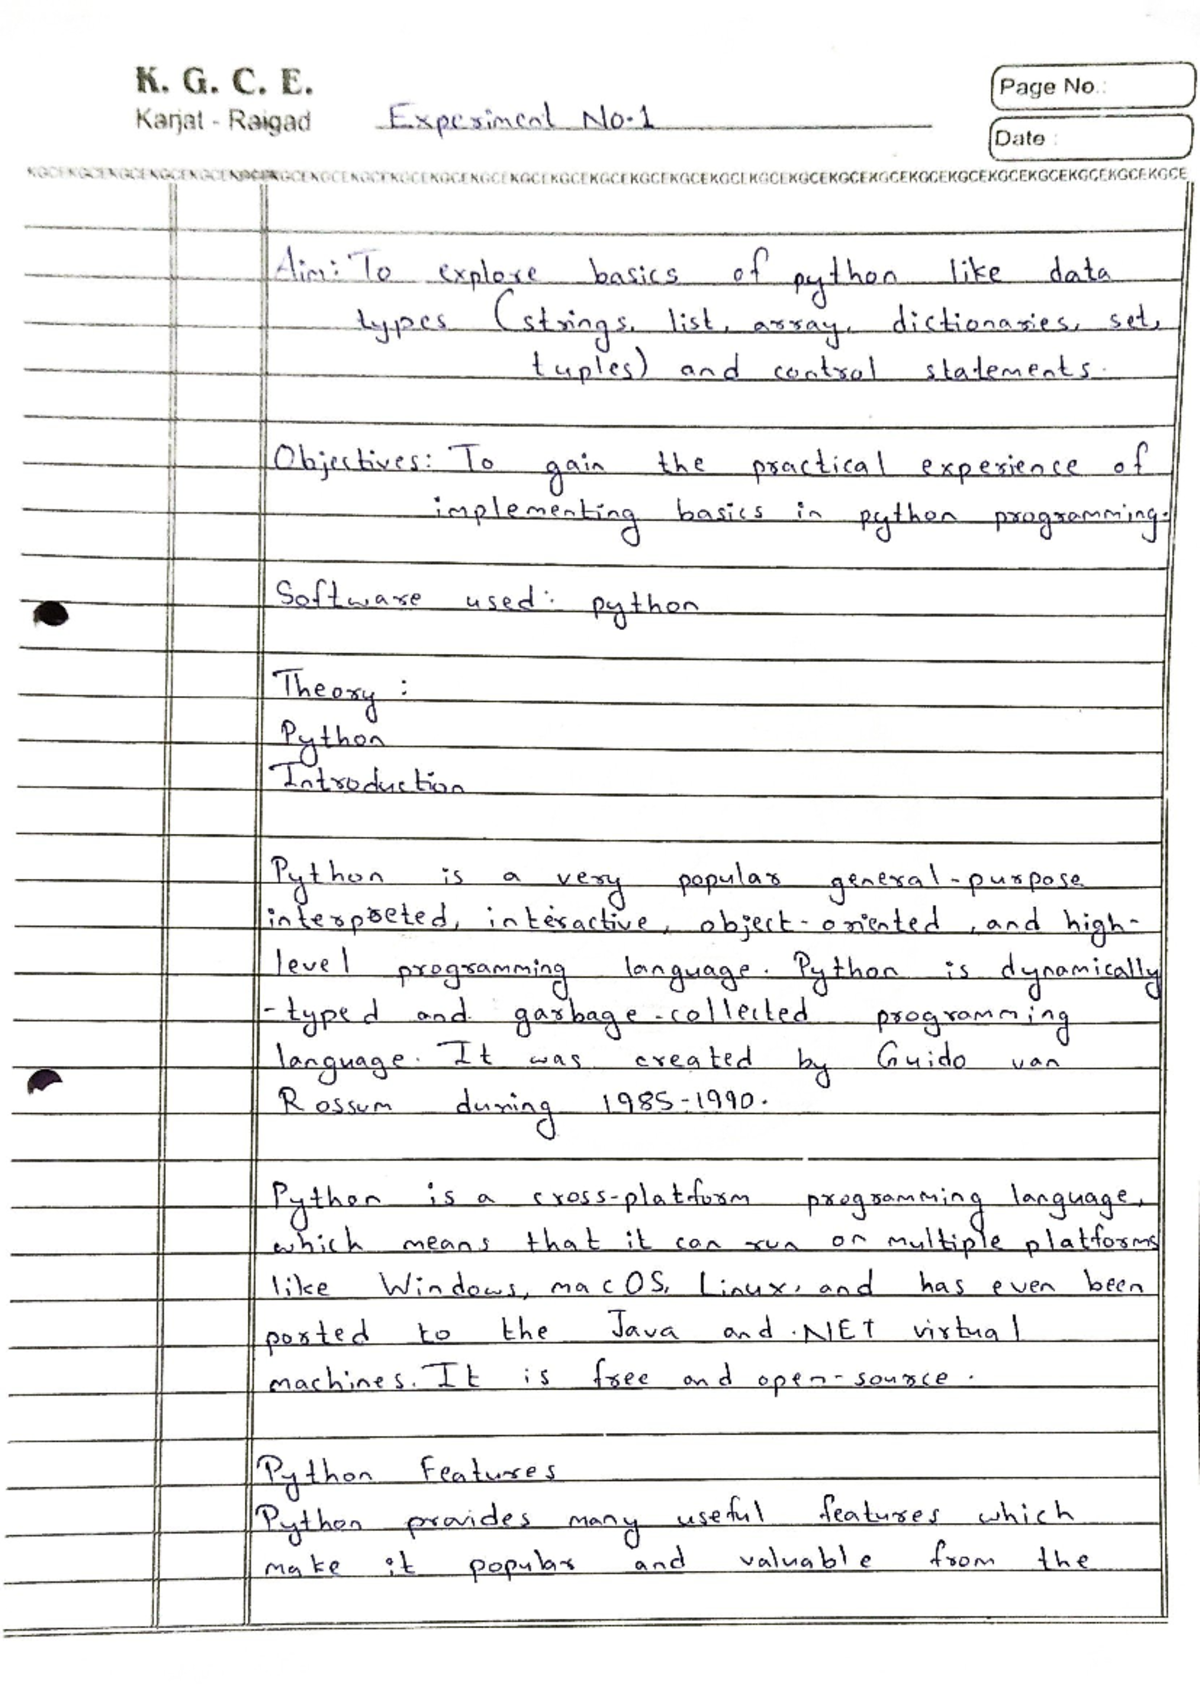 K. G. C. E.
Karjat - Raigad
Experiment No.1
Page No.:
Date :
KGCEKGCEKGCEKGCEKGCEKGCEKGCEKGCEKGCEKGCEKGCEKGCEKGCEKGCEKGCEKGCEKGCEKGCEKGCEKGCEKGCEKGCEKGCEKGCEKGCEKGCEKGCEKGCEKGCE
Aim: To explore basics of python like data
types (strings, list, array, dictionaries, set,
tuples) and control statements.
Objectives: To gain the practical experience of
implementing basics in python programming.
Software used: python
Theory :
Python
Introduction
Python is a very popular general-purpose
interpreted, interactive, object-oriented, and high-
level programming language. Python is dynamically
-typed and garbage-collected programming
language. It was created by Guido van
Rossum during 1985-1990.
Python is a cross-platform programming language,
which means that it can run on multiple platforms
like Windows, macOS, Linux, and has even been
ported to the Java and .NET virtual
machines. It is free and open-source.
Python Features
Python provides many useful features which
make it popular and valuable from the